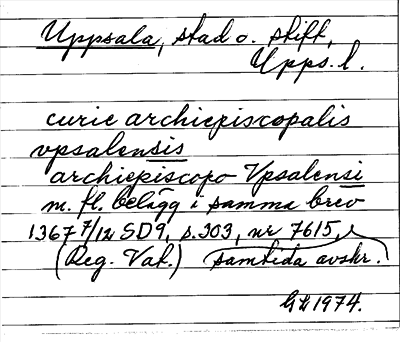 Uppsala, stad o. skift,
Upps. l.
curie archiepiscopalis
vpsalensis
archiepiscopo Vpsalensi
m. fl. belägg i samma brev
1367 7/12 SD9, s. 303, nr 7615,
(Reg. Vat.) samtida avskr.
GL 1974.